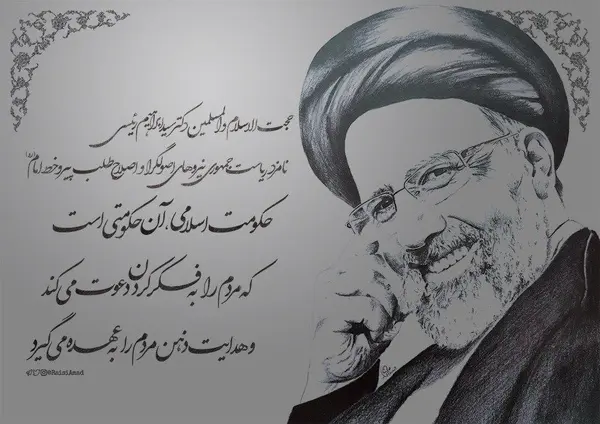 حجت الاسلام والمسلمین دکتر سید ابراهیم رئیسی
نامزد ریاست جمهوری نیروهای اصولگرا و اصلاح طلب پیرو خط امام(ره)
حکومت اسلامی، آن حکومتی است
که مردم را به فکر کردن دعوت می کند
و هدایت ذهن مردم را به عهده می گیرد
@RaisiAsad